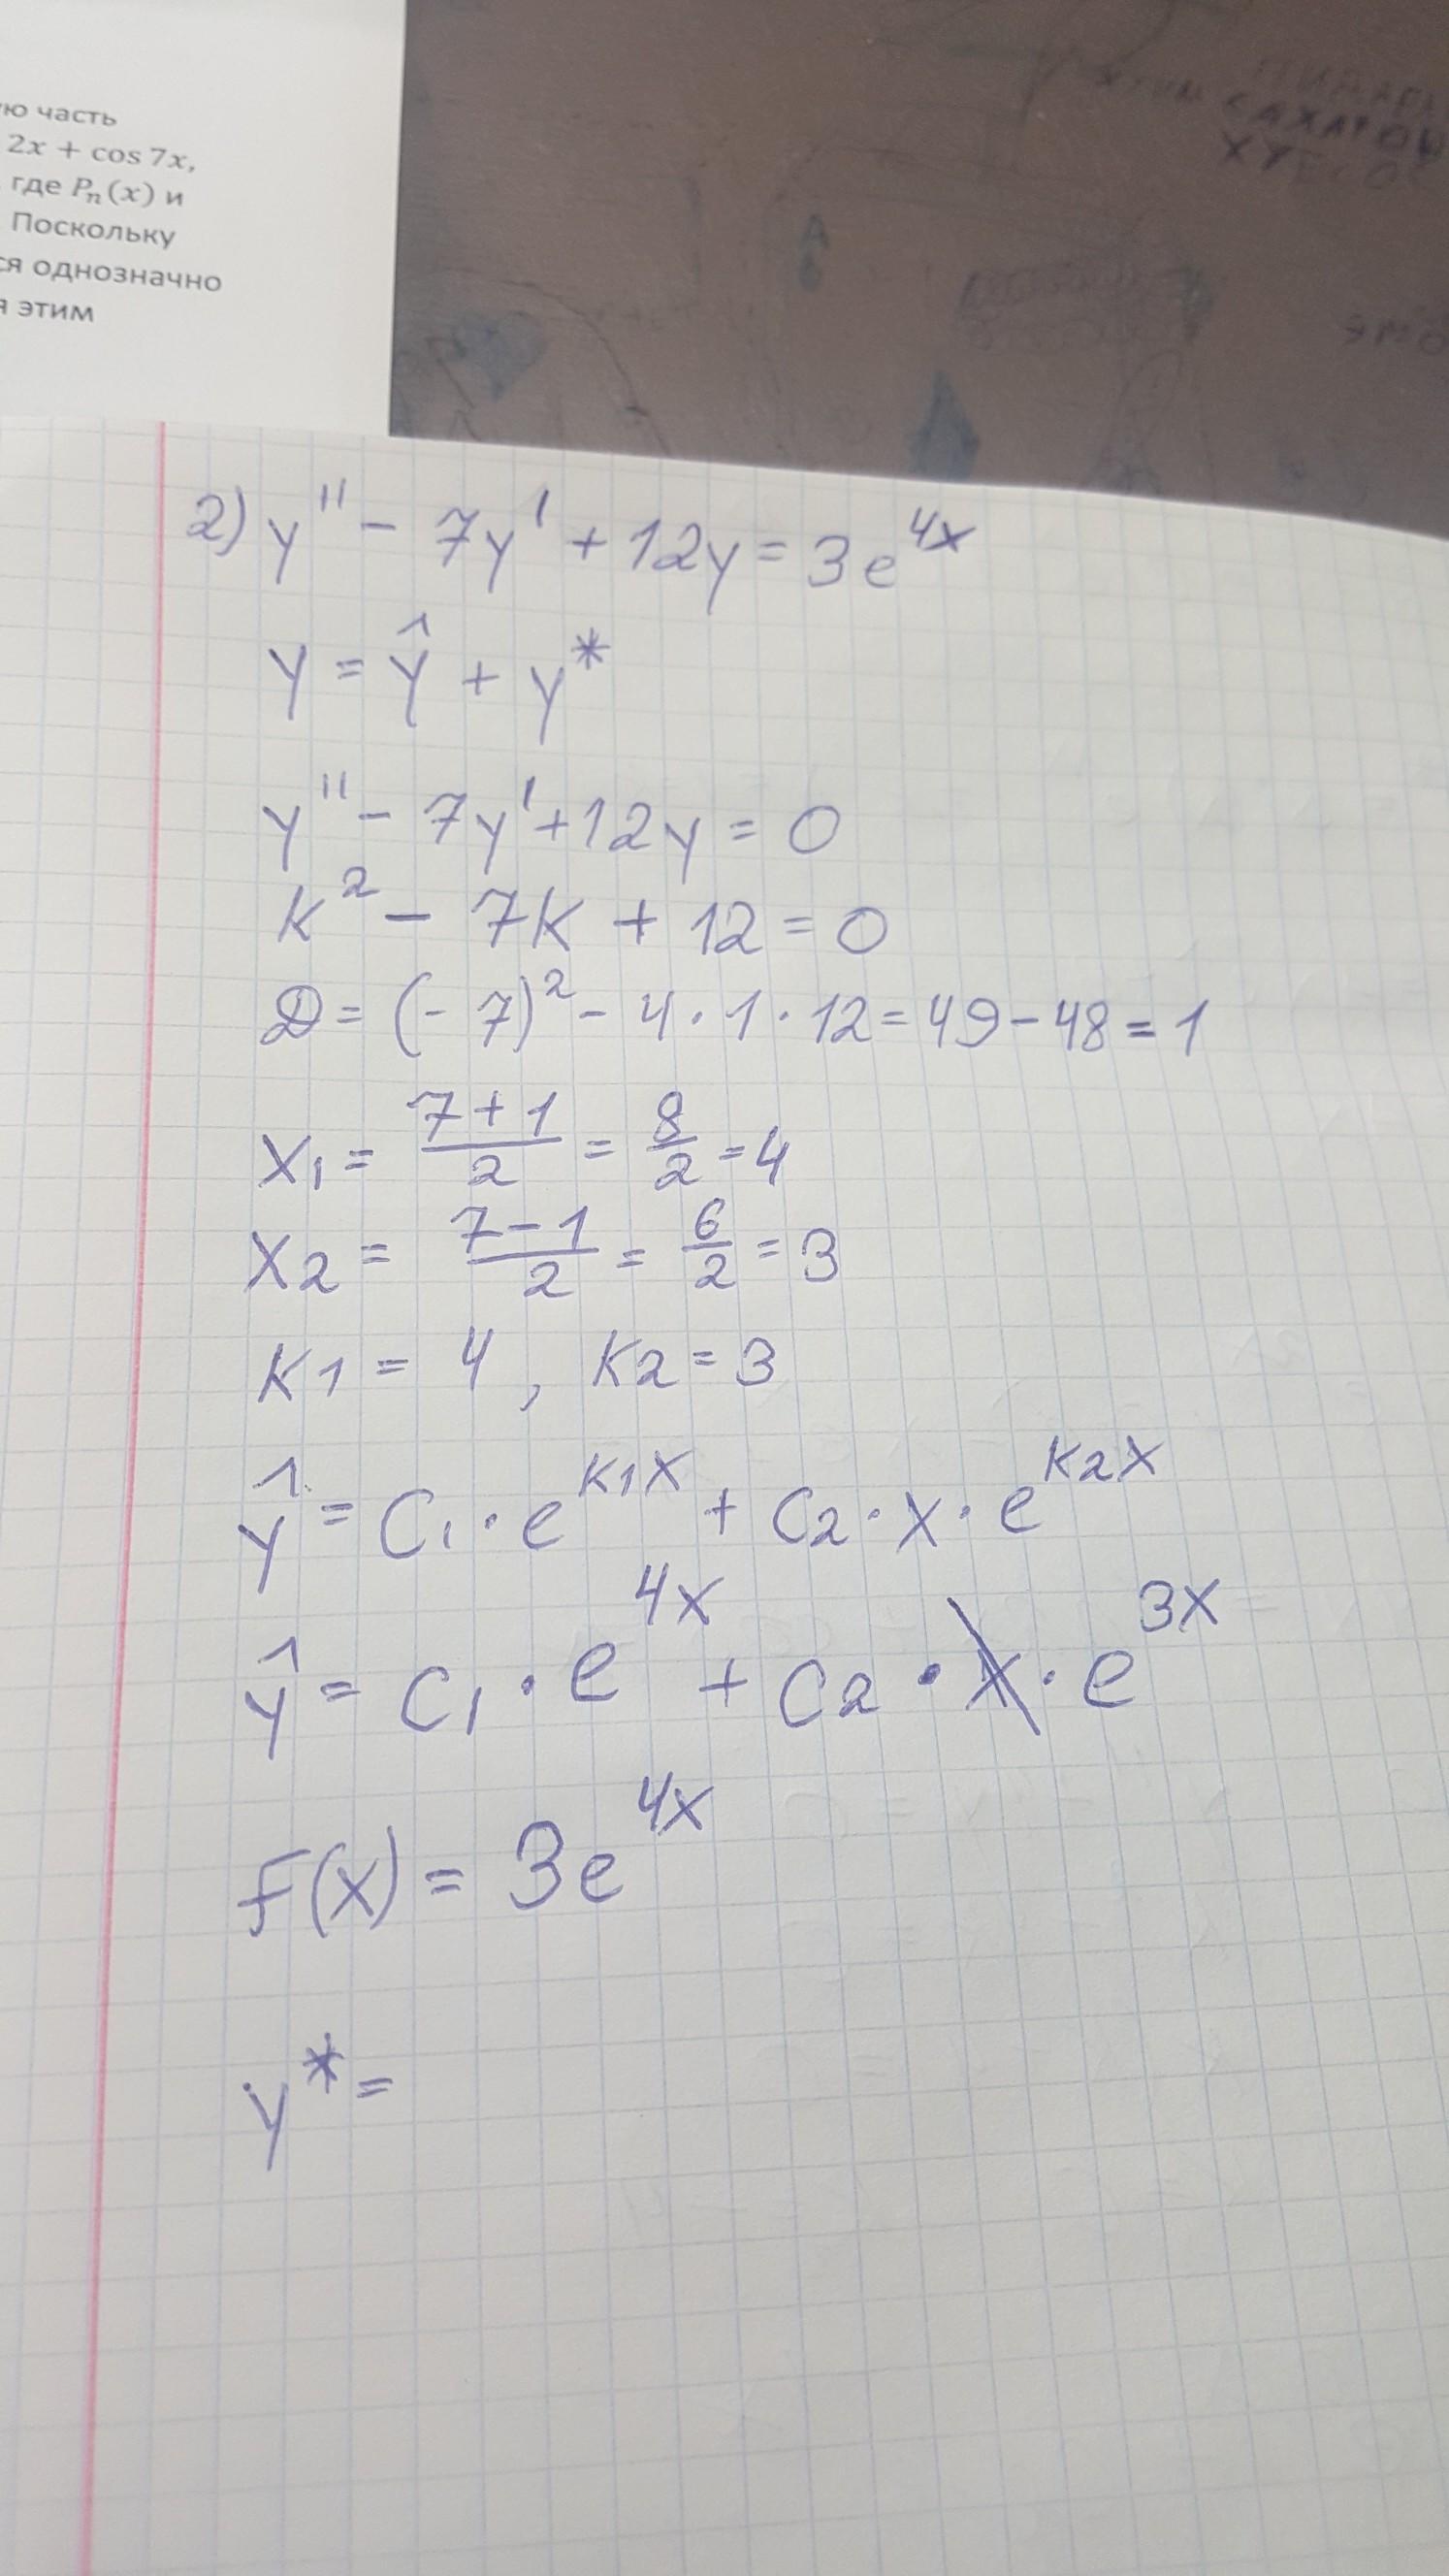 ю часть
2x + cos 7x,
где Pₙ(x) и
Поскольку
ся однозначно
я этим
2) y'' - 7y' + 12y = 3e^{4x}
y = ŷ + y*
y'' - 7y' + 12y = 0
k² - 7k + 12 = 0
D = (-7)² - 4·1·12 = 49 - 48 = 1
x₁ = \frac{7+1}{2} = \frac{8}{2} = 4
x₂ = \frac{7-1}{2} = \frac{6}{2} = 3
k1 = 4, k2 = 3
ŷ = C₁·e^{k₁x} + C₂·x·e^{k₂x}
ŷ = C₁·e^{4x} + C₂·x·e^{3x}
F(x) = 3e^{4x}
y* =